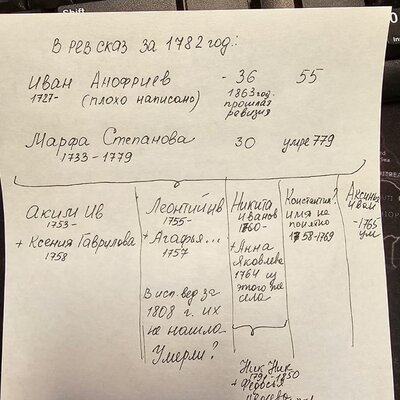 В рев сказ за 1782 год.:
Иван Анофриев - 36 55
1727- (плохо написано) 1863 год.
прошлая
ревизия
Марфа Степанова 30 умре 779
1733 - 1779
Аким Ив
1753-
+ Ксения Гаврилова
1758
Леонтий Ив
1755-
+ Агафья...
1757
В исп. вед за
1808 г. их
не нашла
Умерли?
Никита
Иванов
1760-
+ Анна
Яковлева
1764 из
этого же
села
Ник Ник
1791-1850
+ Федосья
Константин?
имя не
понятно
1758-1769
Аксинья
Иван
-1765
ум
Shift